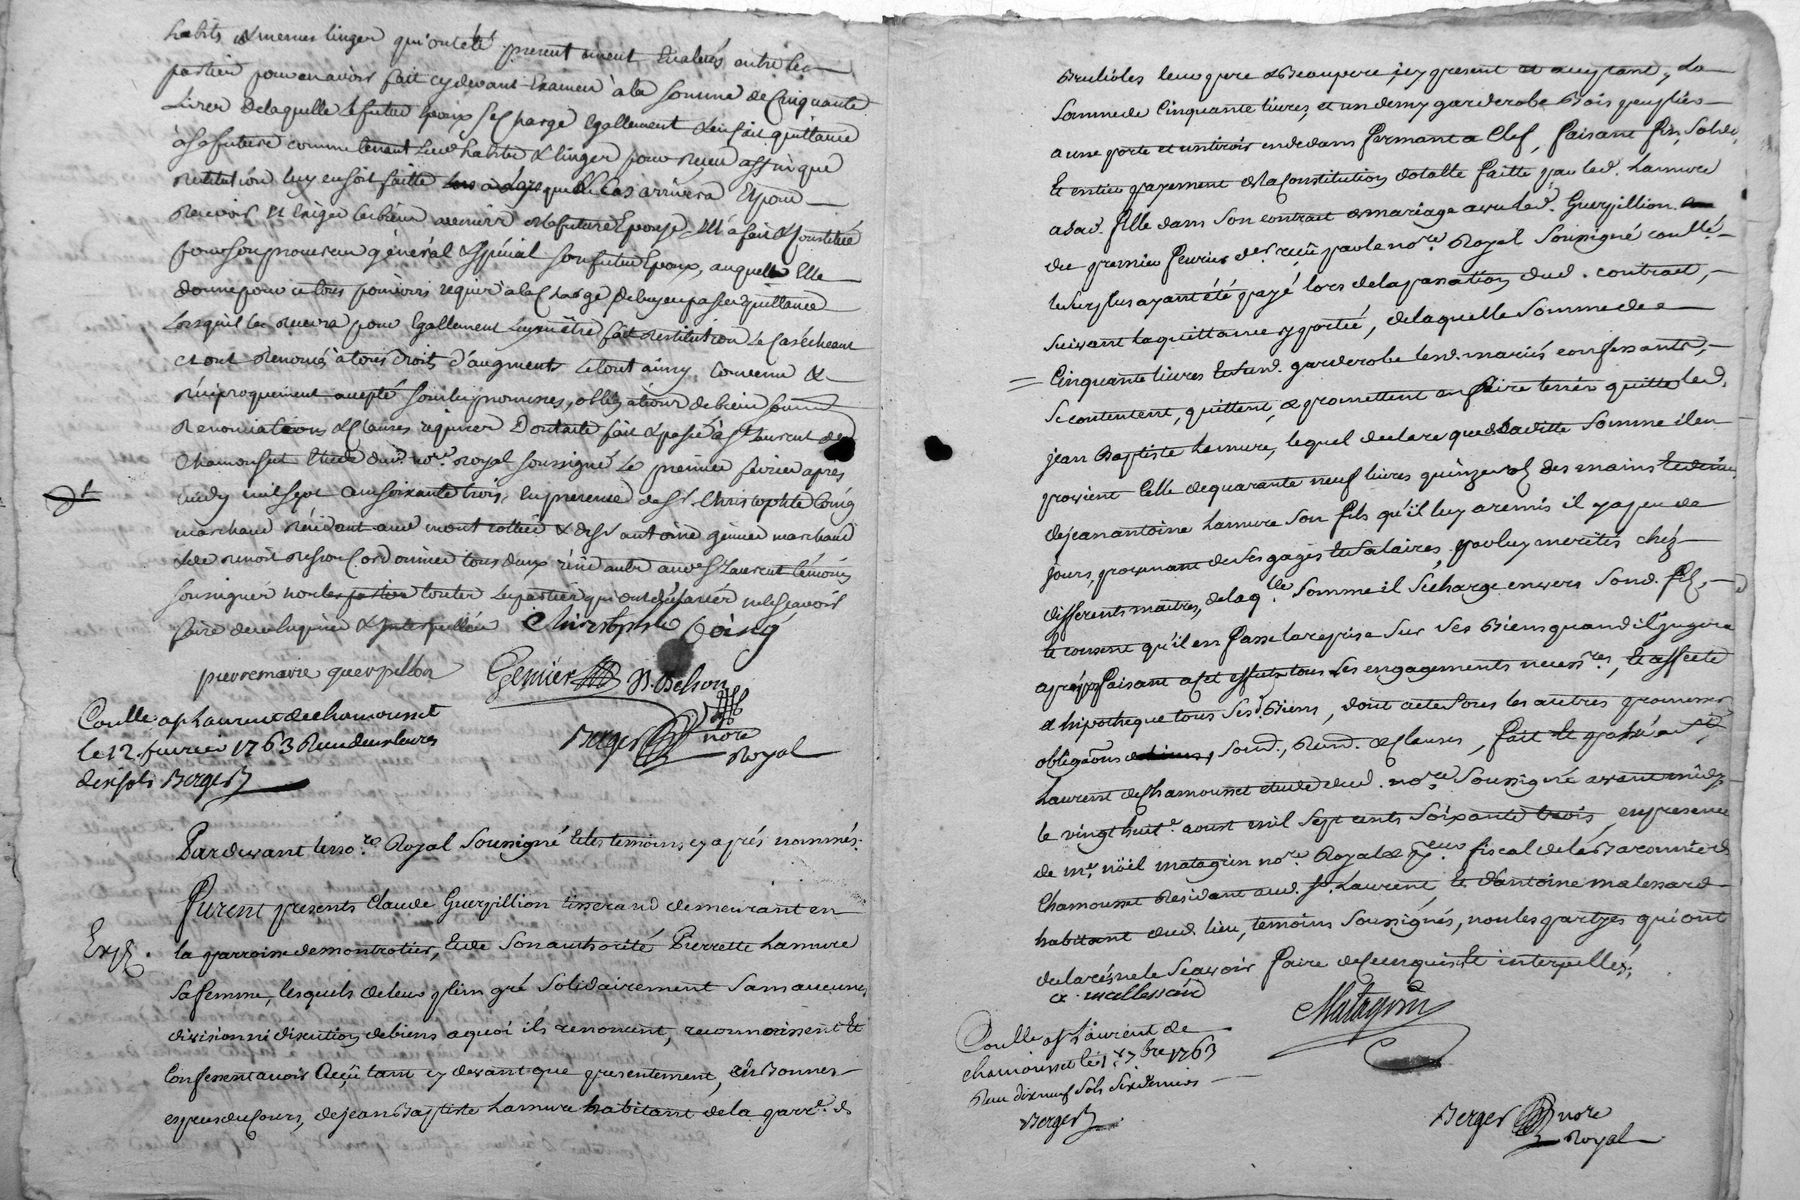 habits & memes linges qui ont été presentement evalués entre les
parties pour en avoir fait cy devant examen à la somme de Cinquante
Livres de laquelle le futur Epoux se charge Egallement & en fait quittance
à sa future comme tenant lesd. habits & linges pour reçeu affin que
restitution luy en soit faitte que le cas arrivera Et pour
Recevoir et Exiger les biens avenir de la future Epouse Ell' a fait & constitué
pour son procureur général & spécial son futur Epoux, auquel Elle
donne pour ce tous pouvoirs requis à la charge de luy en passer quittance
Lorsquil les recevra pour Egallement luy en être fait restitution le cas échéant
et ont Renoncé à tous droits d'augment Le tout ainsy convenu &
Réciproquement accepté sous les promesses, obligations de biens soumis
Renonciations & Clauses requises Dont acte fait & passé à St Laurent de
Chamousset Etude dud. nore. Royal soussigné Le premier fevrier apres
midy mil sept cent soixante trois, En presence de Sr. Christophle Coing
marchand résidant aud. montrottier & de Sr antoine génier marchand
& de benoit besson Cordonnier tous deux résidants aud. St Laurent témoins
soussignés non les parties qui ont déclarées ne le scavoir
faire de ce Enquises & Interpellées Christophle Coing
pierre marie querpillon Genier B. Besson
Conllé a St Laurent de chamousset
le 12. fevrier 1763 Reçu deux livres
dix sols Berger
Berger nore
Royal
Pardevant le no.re Royal Soussigné Et les temoins cy aprés nommés.
Furent presents Claude Guerpillion tisserand demeurant en
Exp.
la parroisse de montrotier, Et de son authorité Pierrette Lamure
sa femme, lesquels de leur plein gré Solidairement Sans aucune
division ni discution de biens a quoi ils renoncent, reconnoissent Et
Confessent avoir Reçû tant cy devant que presentement, en Bonnes
especes du Cours, de jean Baptiste Lamure habitant de la parr.e de
Brulioles leur pere & Beaupere icy present et acceptant, La
Somme de Cinquante livres, et un demy garderobe Bois peuplier
a une porte et un tiroir en dedans fermant a Clef, faisant fin, solde,
Et entier payement de la Constitution dotalle faitte par led. Lamure
a sad. fille dans son contrat de mariage avec led. Guerpillion
du premier fevrier dr. reçû par le nore. Royal Soussigné conllé
le surplus ayant été payé lors de la passation dud. contract,
Suivant la quittance y portée, de laquelle Somme de
Cinquante livres Et sud. garderobe lesd. mariés confessants,
se contentent, quittent, & promettent en faire tenir quitte led.
jean Baptiste Lamure, lequel declare que de laditte Somme il en
provient Celle de quarante neuf livres quinze sols des mains
de jean antoine Lamure Son fils qu'il luy a remis il y a peu de
jours, provenant de ses gages Et Salaires, par luy merités chéz
differents maitres, de laq.lle Somme il se charge envers Sond. fils,
Et consent qu'il en fasse la reprise Sur Ses Biens quand il jugera
apropos faisant a cet effet tous les engagements necess.res, Et affecte
& hipotheque tous Sesd. Biens, dont acte Sous les autres promesses
obligaons Soud., Rend. & Clauses, fait Et passé a St.
Laurent de Chamousset etude dud. nore. Soussigné avant midy
le vingt huit. aoust mil Sept cents Soixante trois, en presence
de mr. nöil matagrin nore. Royal & preur. fiscal de la Baronnie de
Chamousset Residant aud. St. Laurent, Et d'antoine malessard
habitant dud. lieu, temoins Soussignés, non les partyes qui ont
declarés ne le Scavoir faire de ce enquis Et interpellés.
a. mallessard
Matagrin
Conllé a St Laurent de
chamousset le 1.r 7bre 1763
Reçu dix neuf Sols Six deniers
Berger
Berger nore
Royal